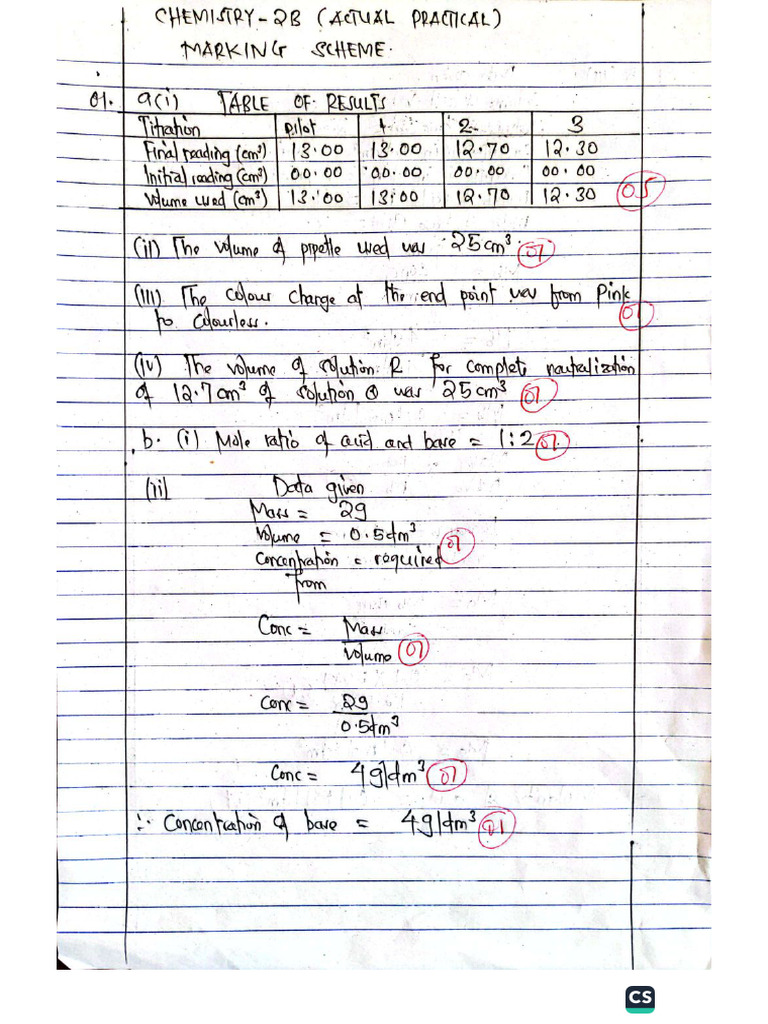 CHEMISTRY-2B (ACTUAL PRACTICAL)
MARKING SCHEME.
01. a(i) TABLE OF RESULTS
Titration Pilot 1 2 3
Final reading (cm³) 13.00 13.00 12.70 12.30
Initial reading (cm³) 00.00 00.00 00.00 00.00
Volume used (cm³) 13.00 13.00 12.70 12.30 05
(ii) The volume of pipette used was 25cm³. 01
(iii) The colour change at the end point was from Pink
to colourless. 01
(iv) The volume of solution R for complete neutralization
of 12.7cm³ of solution Q was 25cm³ 01
b. (i) Mole ratio of acid and base = 1:2 01
(ii) Data given
Mass = 2g
Volume = 0.5dm³
Concentration = required 01
from
Conc = Mass
Volume 01
Conc = 2g
0.5dm³
Conc = 4g/dm³ 01
∴ Concentration of base = 4g/dm³ 01
CS